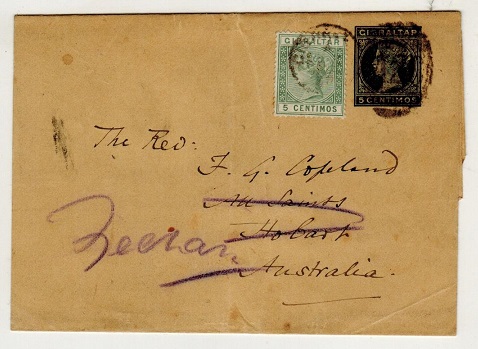 GIBRALTAR
5 CENTIMOS
GIBRALTAR
5 CENTIMOS
The Rev:
F. G. Copeland
All Saints
Hobart
Zeehan
Australia.